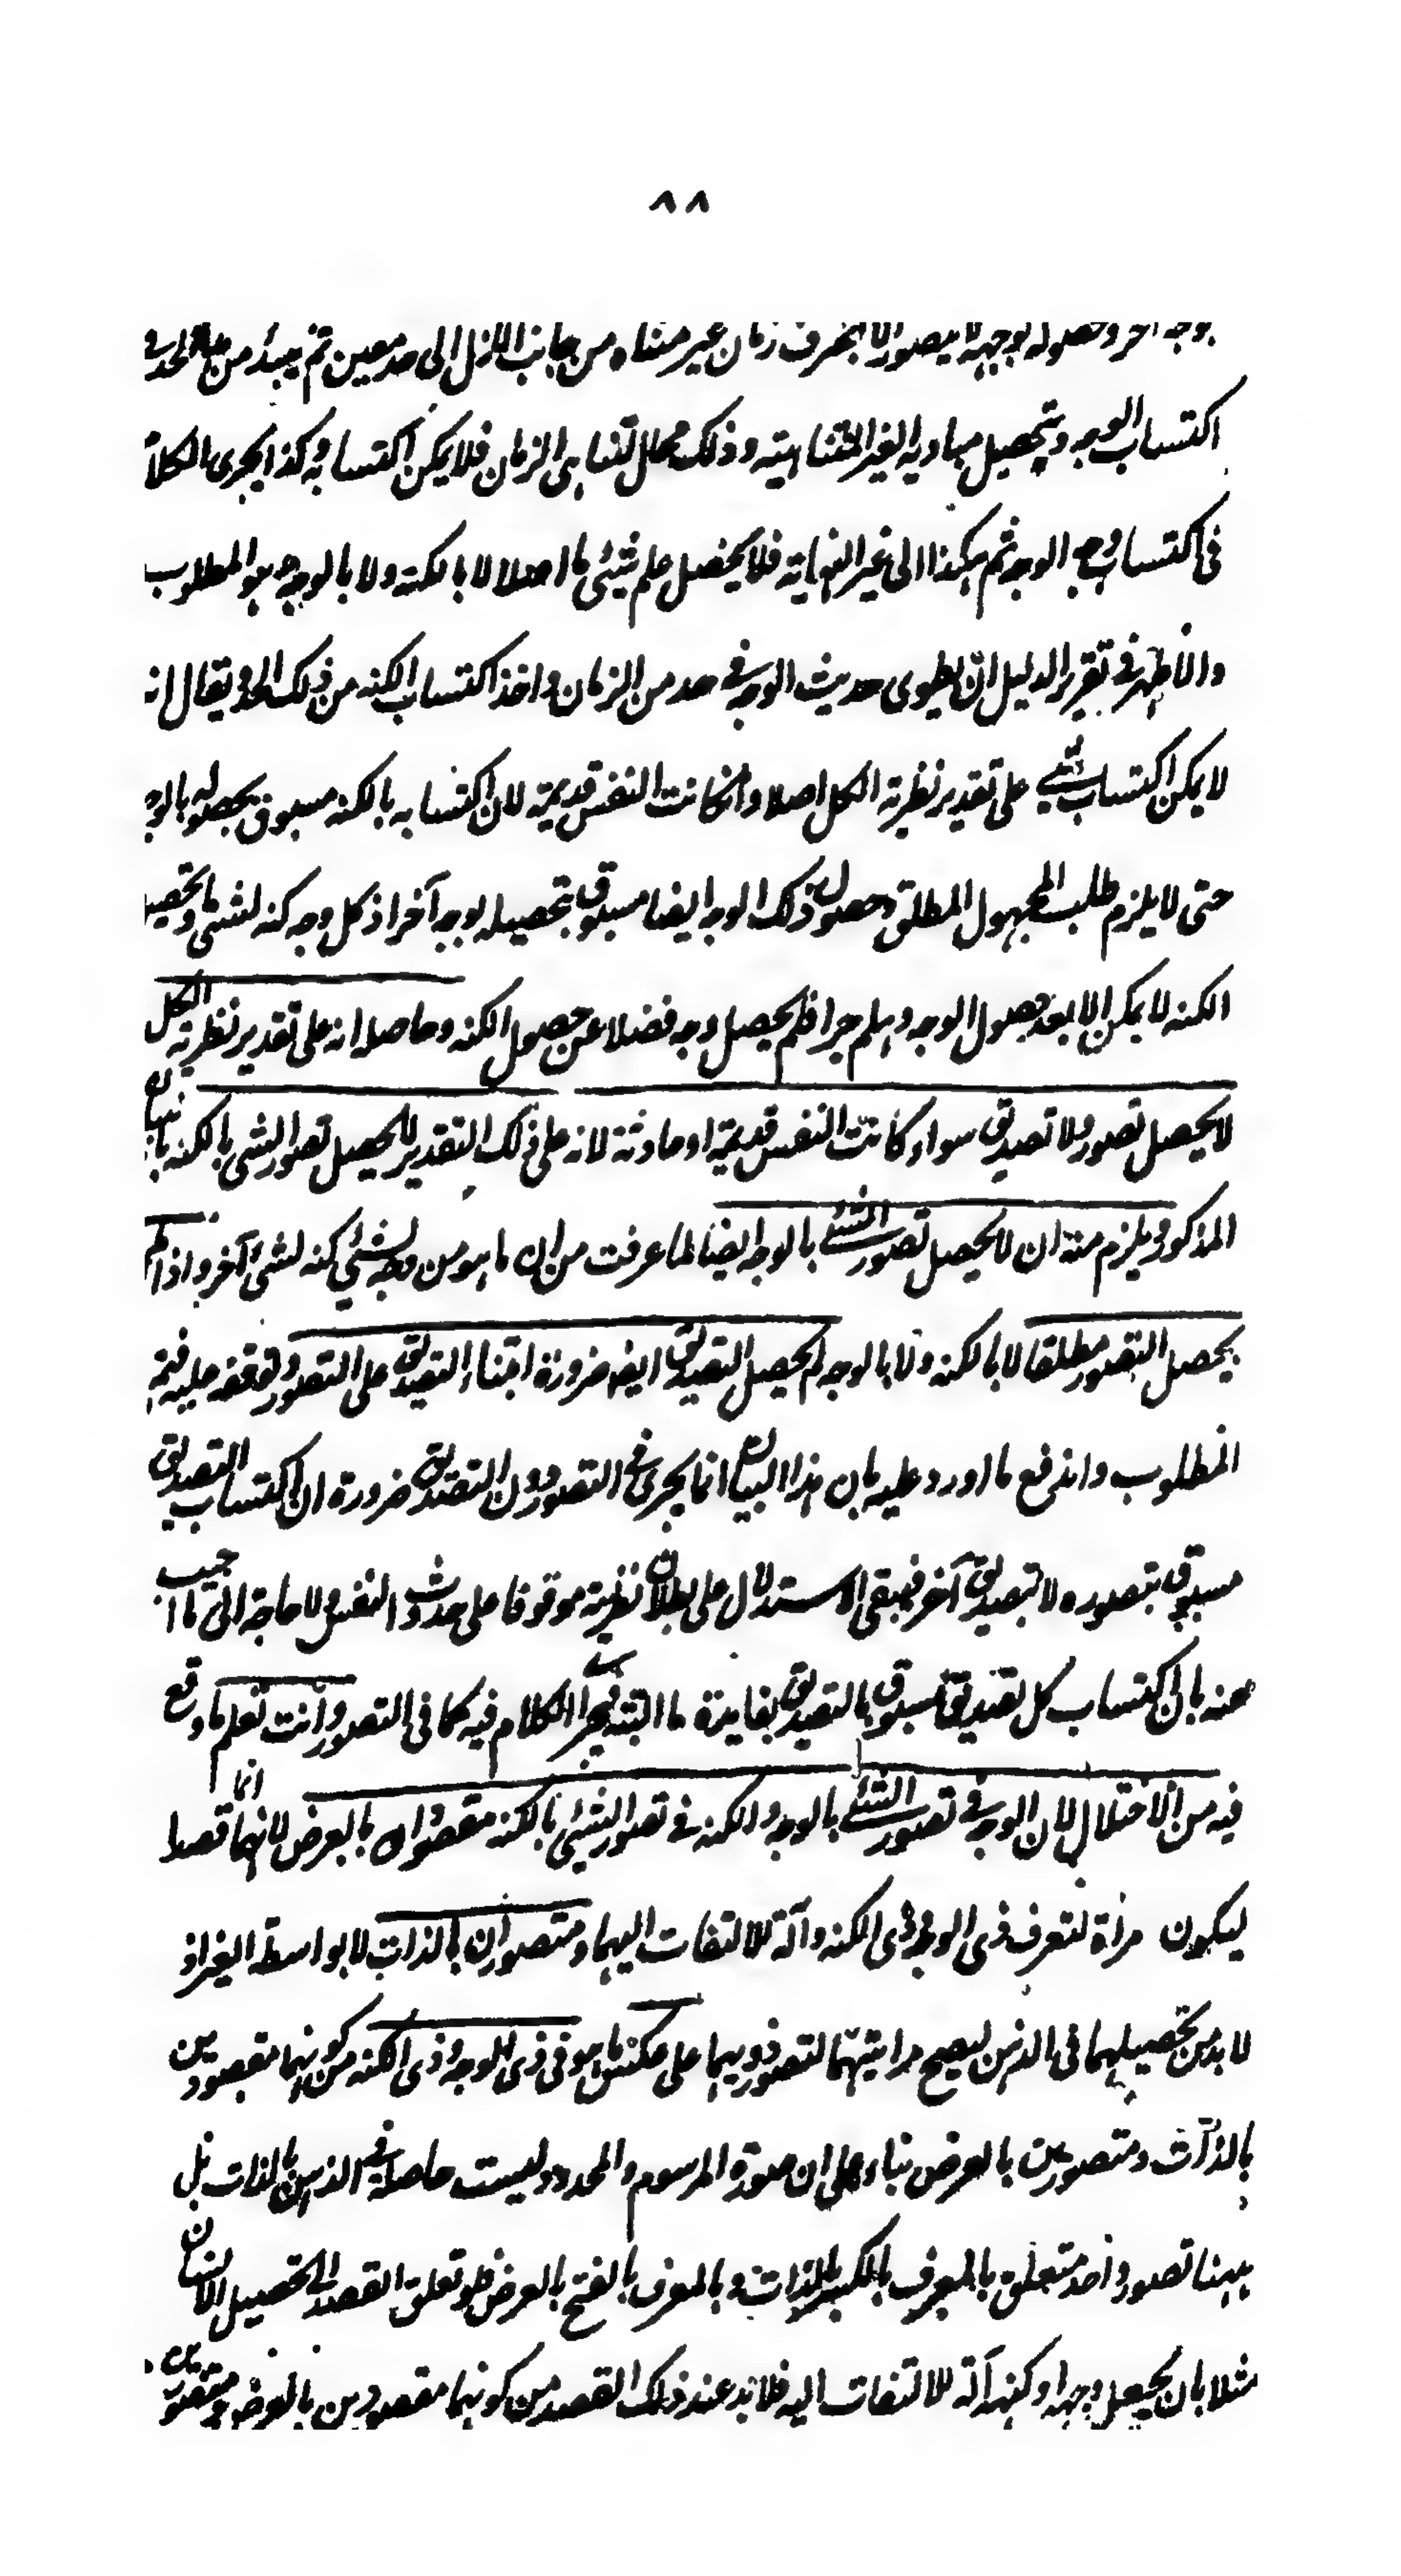 ٨٨
بوجه آخر وحصوله بوجهه لا يتصور الا بصرف زمان غير متناه من جانب الازل الى حد معين ثم يبتدأ من الحد في
اكتساب الوجه وتحصيل مباديه الغير المتناهية وذلك محال لتناهى الزمان فلا يمكن اكتسابه وكذا يجرى الكلام
فى اكتساب وجه الوجه ثم هكذا الى غير النهاية فلا يحصل علم شيئ ما اصلا لا بالكنه ولا بالوجه وهو المطلوب
والاظهر في تقرير الدليل ان يطوى حديث الوجه في حد من الزمان واخذ اكتساب الكنه من ذلك الحد ويقال انه
لا يمكن اكتساب شيئ على تقدير نظرية الكل اصلا وان كانت النفس قديمة لان اكتسابه بالكنه مسبوق بحصوله بالوجه
حتى لا يلزم طلب المجهول المطلق وحصول ذلك الوجه ايضا مسبوق بتحصيله بوجه آخر اذ كل وجه كنه لشئ وتحصيل
الكنه لا يمكن الا بعد حصول الوجه وهلم جرا فلم يحصل وجه فضلا عن حصول الكنه وحاصله انه على تقدير نظرية الكل
لا يحصل تصور ولا تصديق سواء كانت النفس قديمة او حادثة لانه على ذلك التقدير لا يحصل تصور الشئ بالكنه بالبيان
المذكور ويلزم منه ان لا يحصل تصور الشئ بالوجه ايضا لما عرفت من ان ما هو من وجه لشئ كنه لشئ آخر واذا لم
يحصل التصور مطلقا لا بالكنه ولا بالوجه لم يحصل التصديق ايضا ضرورة ابتناء التصديق على التصور وتوقفه عليه فتم
المطلوب واندفع ما اورد عليه بان هذا البيان انما يجرى فى التصور دون التصديق ضرورة ان اكتساب التصديق
مسبوق بتصوره لا بتصديق آخر فيبقى الاستدلال على بطلان نظرية موقوفا على حدوث النفس ولا حاجة الى ما اجيب
عنه بان اكتساب كل تصديق مسبوق بالتصديق بفايدة ما البتة فيجرى الكلام فيه كما فى التصور وانت تعلم ما وقع
فيه من الاختلال لان الوجه في تصور الشئ بالوجه والكنه في تصور الشيئ بالكنه مقصودان بالعرض لانهما انما قصدا
ليكون مرأة لتعرف ذى الوجه وذى الكنه وآلة للالتفات اليهما ومتصوران بالذات لا بواسطة الغير اذ
لا بد من تحصيلهما فى الذهن ليصح مرايتهما لتصور ذويهما على عكس ما هو فى ذى الوجه وذى الكنه من كونهما مقصودين
بالذات ومتصورين بالعرض بناء على ان صورة المرسوم والمحدود ليست حاصلة في الذهن بالذات بل
ههنا تصور واحد متعلق بالمعرف بالكسر بالذات وبالمعرف بالفتح بالعرض فلو تعلق القصد الى تحصيل الانسان
مثلا بان يجعل وجهه او كنهه آلة للالتفات اليه فلا بد عند ذلك القصد من كونهما مقصودين بالعرض ومتصورين